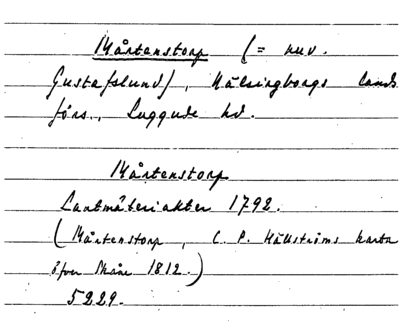 Mårtenstorp (= nuv.
Gustafslund), Hälsingborgs lands
förs., Luggude hd.
Mårtenstorp
Lantmäteriakter 1792.
(Mårtenstorp, C. P. Hällströms karta
öfver Skåne 1812.)
5229.